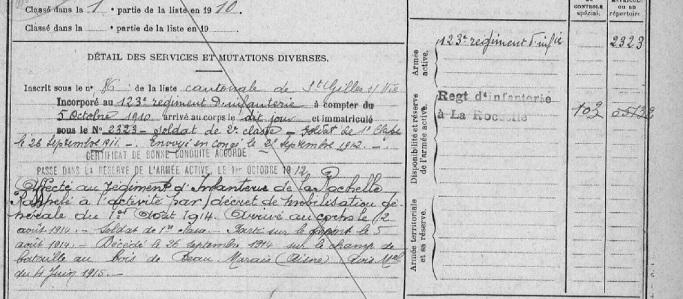 Classé dans la 1 partie de la liste en 1910.
Classé dans la partie de la liste en 19
DÉTAIL DES SERVICES ET MUTATIONS DIVERSES.
Inscrit sous le n° de la liste cantonale de St Gilles s/ Vie
Incorporé au 123e regiment d'infanterie à compter du
5 Octobre 1910 arrivé au corps le dit jour et immatriculé
sous le No 2323 - soldat de 2e classe - soldat de 1e Classe
le 26 septembre 1911 - Envoyé en congé le 25 septembre 1912. -
CERTIFICAT DE BONNE CONDUITE ACCORDÉ
PASSÉ DANS LA RÉSERVE DE L'ARMÉE ACTIVE, LE 1er OCTOBRE 1912,
Affecté au Régiment d'Infanterie de La Rochelle
Rappelé à l'activité par décret de mobilisation gé-
nérale du 1er Août 1914. Arrivé au corps le 2
août 1914. - Soldat de 1e classe. le 5
août 1914 - Décédé le 26 septembre 1914 sur le champ de
bataille au bois de Beau Marais (Aisne) Avis Mel
du 4 Juin 1915. -
Armée active.
123e regiment d'infie
2323
Disponibilité et réserve de l'armée active.
Regt d'infanterie
à La Rochelle
102
Armée territoriale et sa réserve.
DE CONTRÔLE spécial.
MATRICULE ou au répertoire.